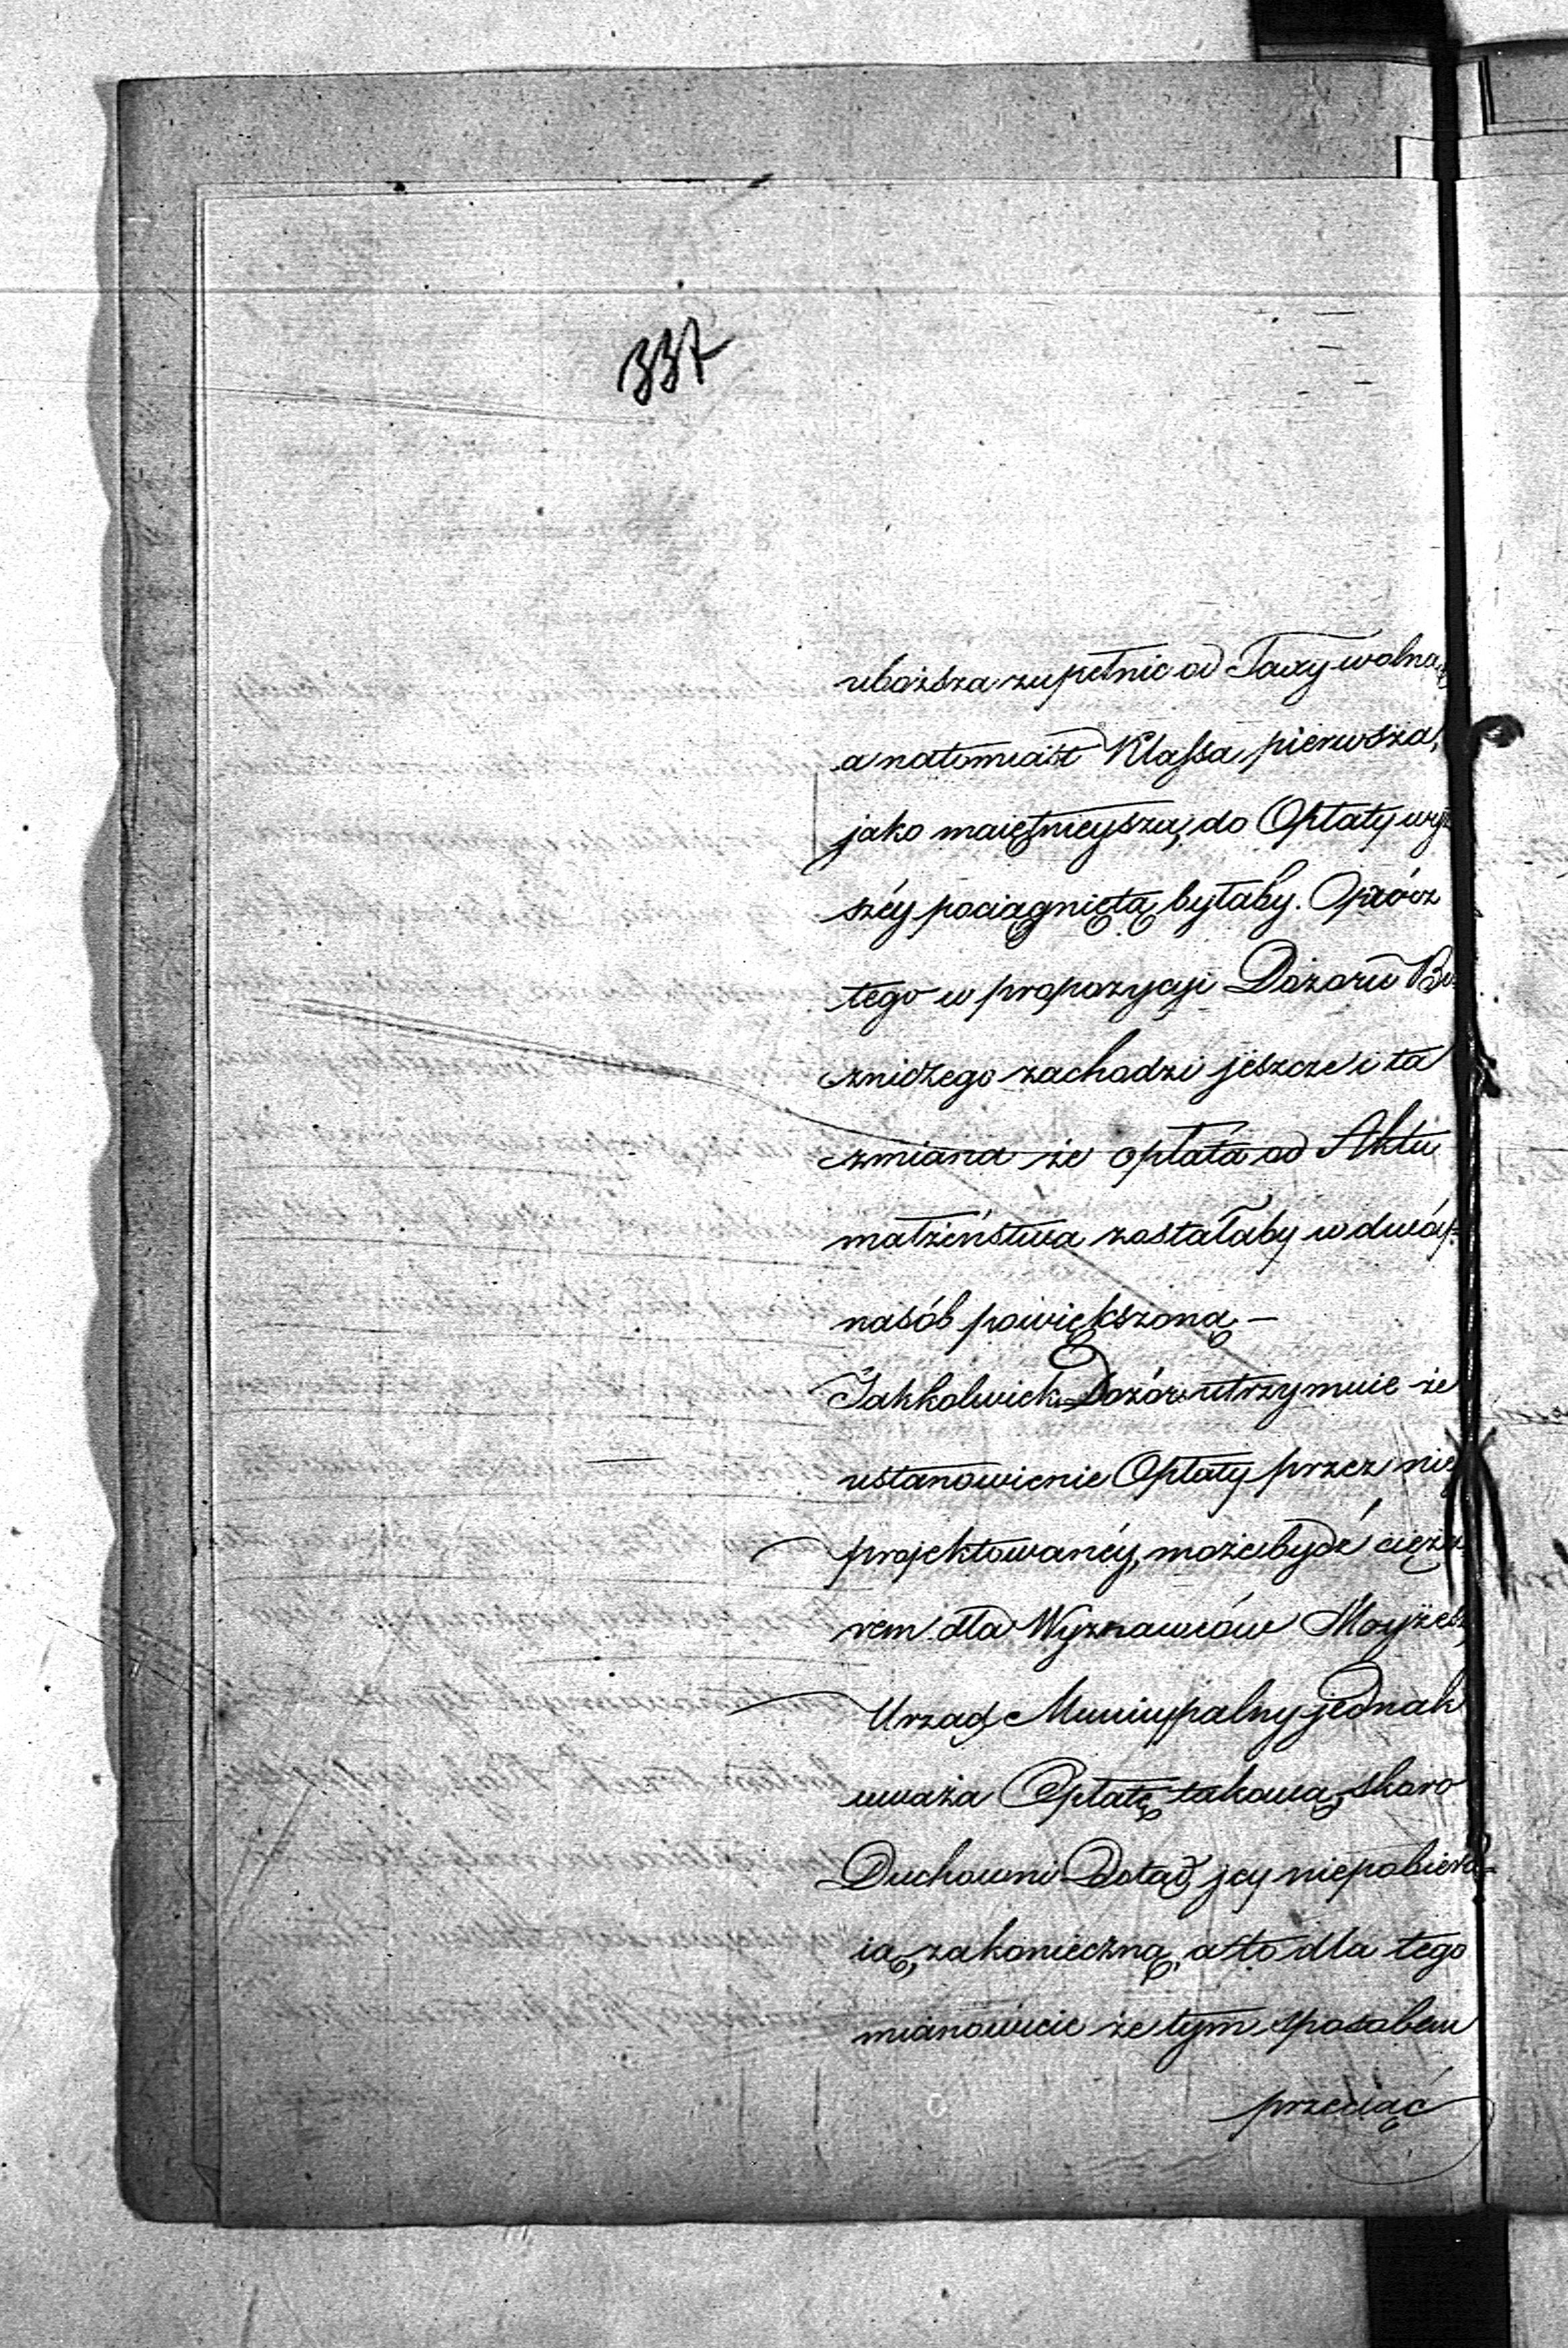 337
uboższa zupełnie od Taxy wolną
a natomiast Klassa pierwsza,
jako maiętnieysza, do Opłaty wyż
széy pociągniętą byłaby. Oprócz
tego w propozycyi Dozoru Bó
zniczego zachodzi jeszcze i ta
zmiana że opłata od Aktu
małżeństwa zostałaby w dwóy
nasób powiększoną –
Jakkolwiek Dozór utrzymuie że
ustanowienie Opłaty przez nie
projektowanéy, może bydź cięża
rem dla Wyznawców Moyżesz
Urząd Municypalny jednak
uważa Opłatę takową, skoro
Duchowni dotąd jey niepobiera
ią, za konieczną, a to dla tego
mianowicie że tym sposobem
przeciąć